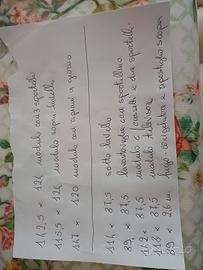 142,5 x 124 modulo con 3 sportelli
115,5 x 124 modulo sopra lavello
147 x 120 modulo con ripiani a giorno
114 x 87,5 sotto lavello
89 x 87,5 lavastoviglie con sportellino
x 87,5 modulo 6 cassetti e due sportelli
118 x 87,5 modulo televisore
89 x 2,6 m. frigo-congelatore e ripostiglio scopa